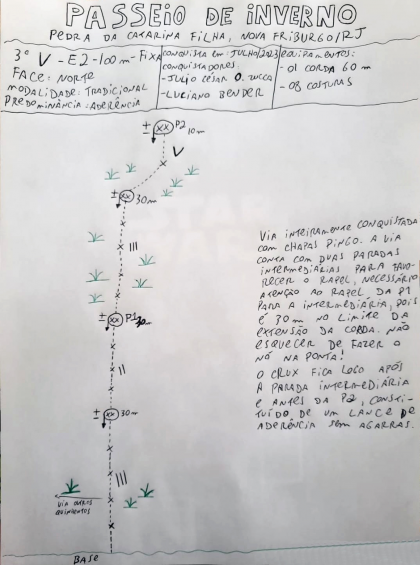 PASSEIO DE INVERNO
PEDRA DA CATARINA FILHA, NOVA FRIBURGO/RJ
3º V - E2 - 100 m - FIXA
FACE: NORTE
MODALIDADE: TRADICIONAL
PREDOMINÂNCIA: ADERÊNCIA
CONQUISTA EM: JULHO/2023
CONQUISTADORES:
- JULIO CÉSAR O. ZUCCA
- LUCIANO BENDER
EQUIPAMENTOS:
- 01 CORDA 60 m
- 08 COSTURAS
± XX P2 10m
V
± XX 30m
III
± XX P1 30m
II
± XX 30m
III
VIA OUTROS
BASE
VIA INTEIRAMENTE CONQUISTADA
COM CHAPAS PINGO. A VIA
CONTA COM DUAS PARADAS
INTERMEDIÁRIAS PARA FAVO-
RECER O RAPEL, NECESSÁRIO
ATENÇÃO AO RAPEL DA P1
PARA A INTERMEDIÁRIA, POIS
É 30m NO LIMITE DA
EXTENSÃO DA CORDA. NÃO
ESQUECER DE FAZER O
NÓ NA PONTA!
O CRUX FICA LOGO APÓS
A PARADA INTERMEDIÁRIA
E ANTES DA P2, CONSTI-
TUÍDO DE UM LANCE DE
ADERÊNCIA SEM AGARRAS.